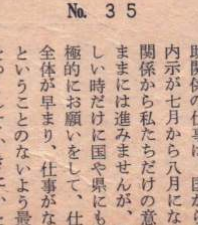 № 35
助関係の仕事は、国から
内示が七月から八月にな
関係から私たちだけの意
ままには進みませんが、
しい時だけに国や県にも
極的にお願いをして、仕
全体が早まり、仕事がな
ということのないよう最